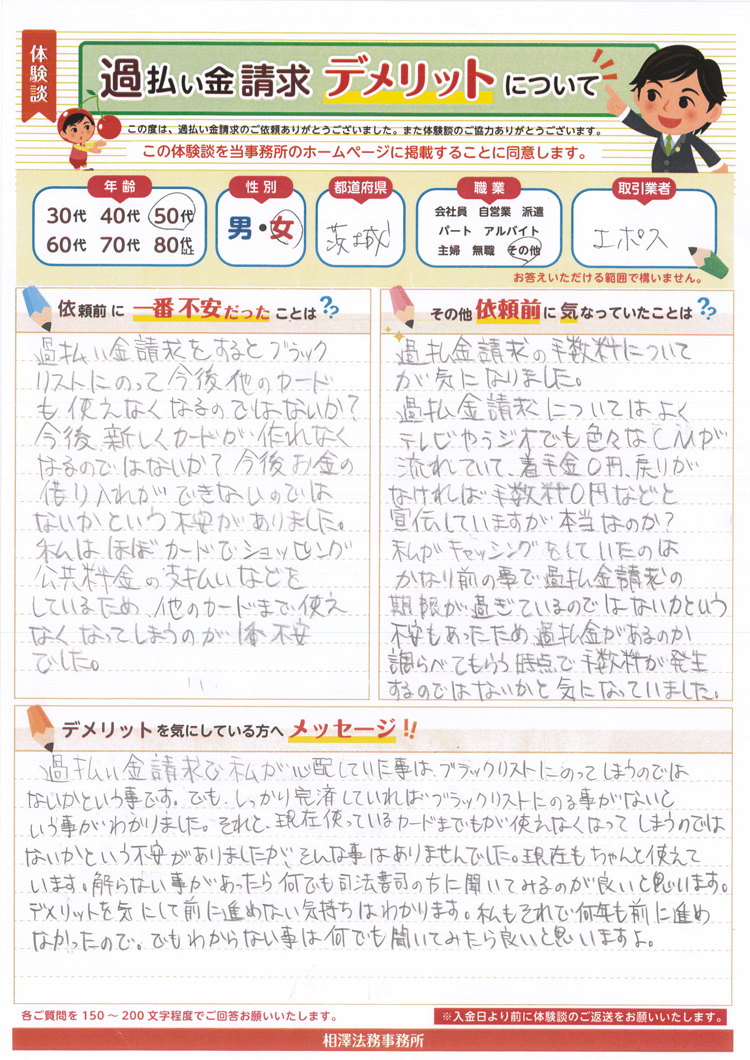 体験談
過払い金請求 デメリットについて
この度は、過払い金請求のご依頼ありがとうございました。また体験談のご協力ありがとうございます。
この体験談を当事務所のホームページに掲載することに同意します。
年齢
30代 40代 50代
60代 70代 80代以上
性別
男・女
都道府県
茨城
職業
会社員 自営業 派遣
パート アルバイト
主婦 無職 その他
取引業者
エポス
お答えいただける範囲で構いません。
依頼前に一番不安だったことは??
過払い金請求をするとブラック
リストにのって今後他のカード
も使えなくなるのではないか?
今後、新しくカードが作れなく
なるのではないか?今後お金の
借り入れができないのでは
ないかという不安がありました。
私はほぼカードでショッピング
公共料金の支払いなどを
しているため、他のカードまで使え
なくなってしまうのが1番不安
でした。
その他依頼前に気なっていたことは??
過払金請求の手数料について
が気になりました。
過払金請求についてはよく
テレビやラジオでも色々なCMが
流れていて、着手金0円、戻りが
なければ手数料0円などと
宣伝していますが本当なのか?
私がキャッシングをしていたのは
かなり前の事で過払金請求の
期限が過ぎているのではないかという
不安もあったため過払金があるのか
調らべてもらう時点で手数料が発生
するのではないかと気になっていました。
デメリットを気にしている方へメッセージ!!
過払い金請求で私が心配していた事は、ブラックリストにのってしまうのでは
ないかという事です。でも、しっかり完済していればブラックリストにのる事がないと
いう事がわかりました。それと、現在使っているカードまでもが使えなくなってしまうのでは
ないかという不安がありましたが、そんな事はありませんでした。現在もちゃんと使えて
います。解らない事があったら何でも司法書司の方に聞いてみるのが良いと思います。
デメリットを気にして前に進めない気持ちはわかります。私もそれで何年も前に進め
なかったので。でもわからない事は何でも聞いてみたら良いと思いますよ。
各ご質問を150～200文字程度でご回答お願いいたします。
※入金日より前に体験談のご返送をお願いいたします。
相澤法務事務所